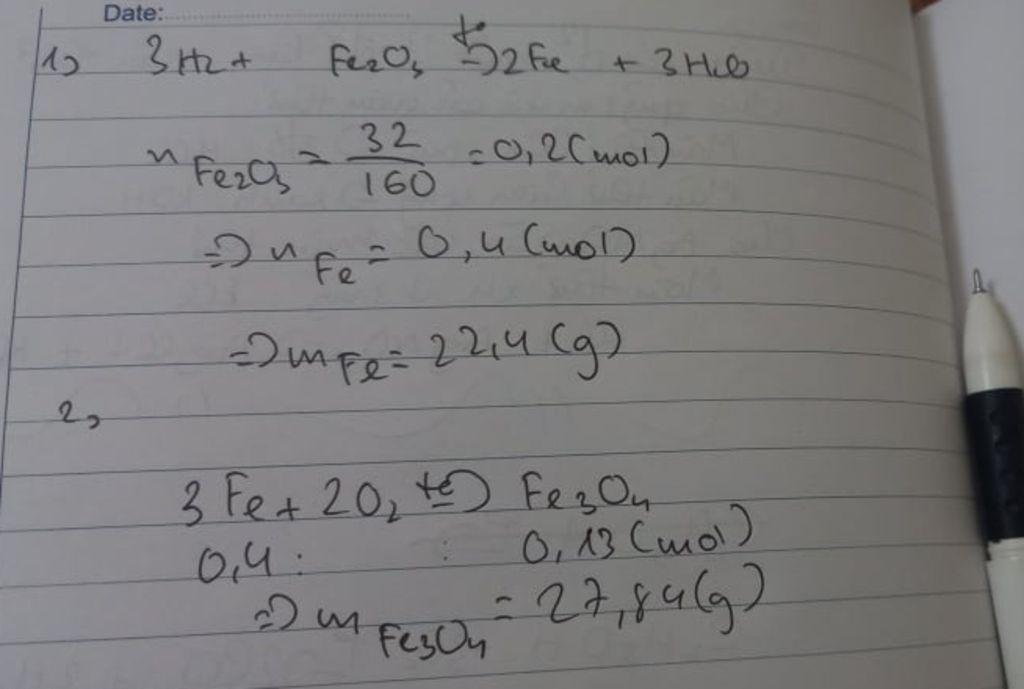 Date:
1, 3H2 + Fe2O3 t°→ 2Fe + 3H2O
n Fe2O3 = 32/160 = 0,2 (mol)
=> n Fe = 0,4 (mol)
=> m Fe = 22,4 (g)
2,
3Fe + 2O2 t°→ Fe3O4
0,4 : : 0,13 (mol)
=> m Fe3O4 = 27,84 (g)